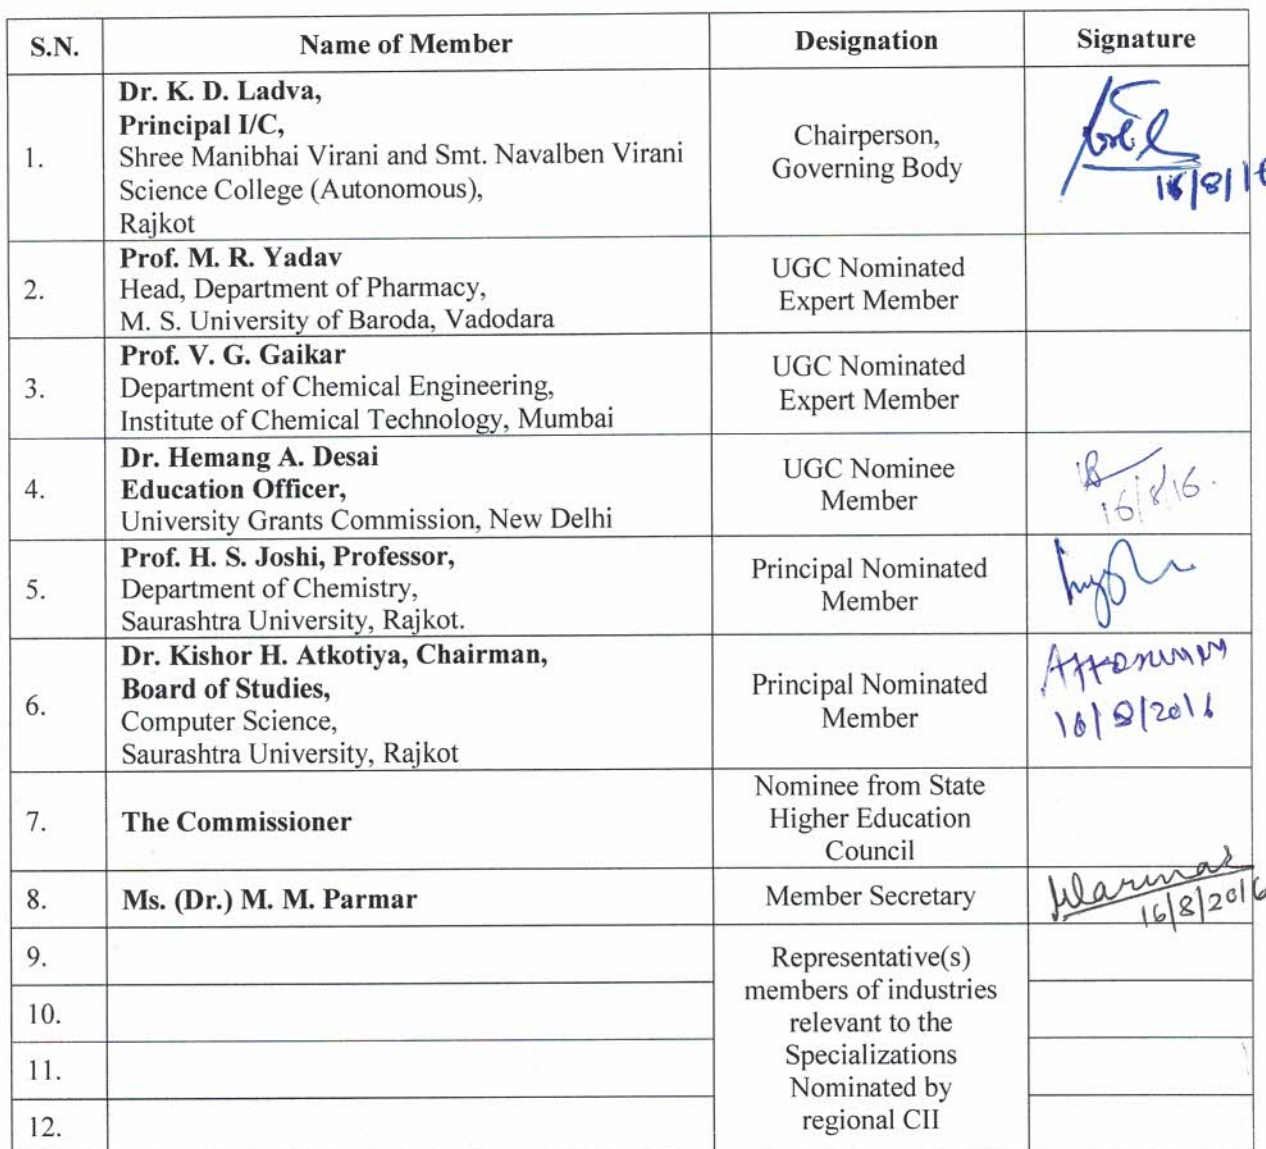 S.N. Name of Member Designation Signature
1. Dr. K. D. Ladva,
Principal I/C,
Shree Manibhai Virani and Smt. Navalben Virani
Science College (Autonomous),
Rajkot
Chairperson,
Governing Body
16/8/16
2. Prof. M. R. Yadav
Head, Department of Pharmacy,
M. S. University of Baroda, Vadodara
UGC Nominated
Expert Member
3. Prof. V. G. Gaikar
Department of Chemical Engineering,
Institute of Chemical Technology, Mumbai
UGC Nominated
Expert Member
4. Dr. Hemang A. Desai
Education Officer,
University Grants Commission, New Delhi
UGC Nominee
Member
16/8/16.
5. Prof. H. S. Joshi, Professor,
Department of Chemistry,
Saurashtra University, Rajkot.
Principal Nominated
Member
6. Dr. Kishor H. Atkotiya, Chairman,
Board of Studies,
Computer Science,
Saurashtra University, Rajkot
Principal Nominated
Member
16/8/2016
7. The Commissioner
Nominee from State
Higher Education
Council
8. Ms. (Dr.) M. M. Parmar Member Secretary
16/8/2016
9.
10.
11.
12.
Representative(s)
members of industries
relevant to the
Specializations
Nominated by
regional CII